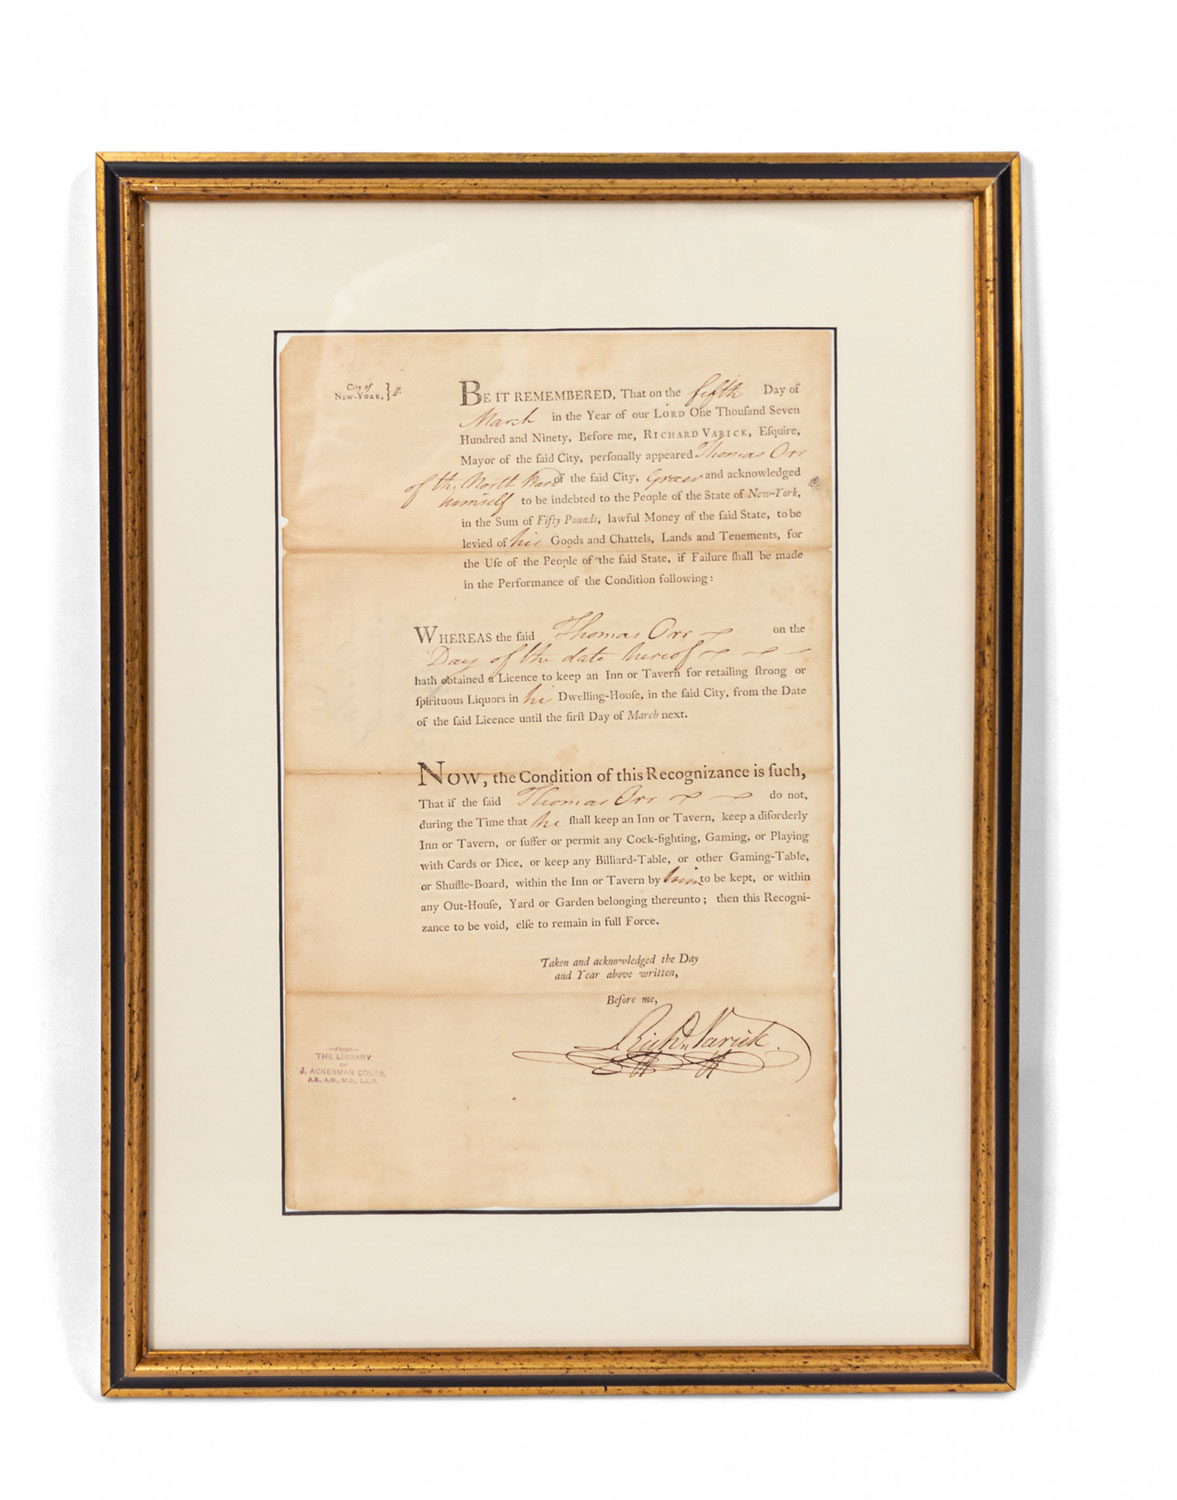 City of
NEW-YORK, } ſſ.
BE IT REMEMBERED, That on the fifth Day of
March in the Year of our LORD One Thouſand Seven
Hundred and Ninety, Before me, RICHARD VARICK, Eſquire,
Mayor of the ſaid City, perſonally appeared Thomas Orr
of the North Ward of the ſaid City, Grocer and acknowledged
himself to be indebted to the People of the State of New-York,
in the Sum of Fifty Pounds, lawful Money of the ſaid State, to be
levied of his Goods and Chattels, Lands and Tenements, for
the Uſe of the People of the ſaid State, if Failure ſhall be made
in the Performance of the Condition following:
WHEREAS the ſaid Thomas Orr on the
Day of the date hereof
hath obtained a Licence to keep an Inn or Tavern for retailing ſtrong or
ſpirituous Liquors in his Dwelling-Houſe, in the ſaid City, from the Date
of the ſaid Licence until the firſt Day of March next.
NOW, the Condition of this Recognizance is ſuch,
That if the ſaid Thomas Orr do not,
during the Time that he ſhall keep an Inn or Tavern, keep a diſorderly
Inn or Tavern, or ſuffer or permit any Cock-fighting, Gaming, or Playing
with Cards or Dice, or keep any Billiard-Table, or other Gaming-Table,
or Shuffle-Board, within the Inn or Tavern by him to be kept, or within
any Out-Houſe, Yard or Garden belonging thereunto; then this Recogni-
zance to be void, elſe to remain in full Force.
Taken and acknowledged the Day
and Year above written,
Before me,
Richd. Varick.
—FROM—
THE LIBRARY
OF
J. ACKERMAN COLES,
A.B., A.M., M.D., LL.D.